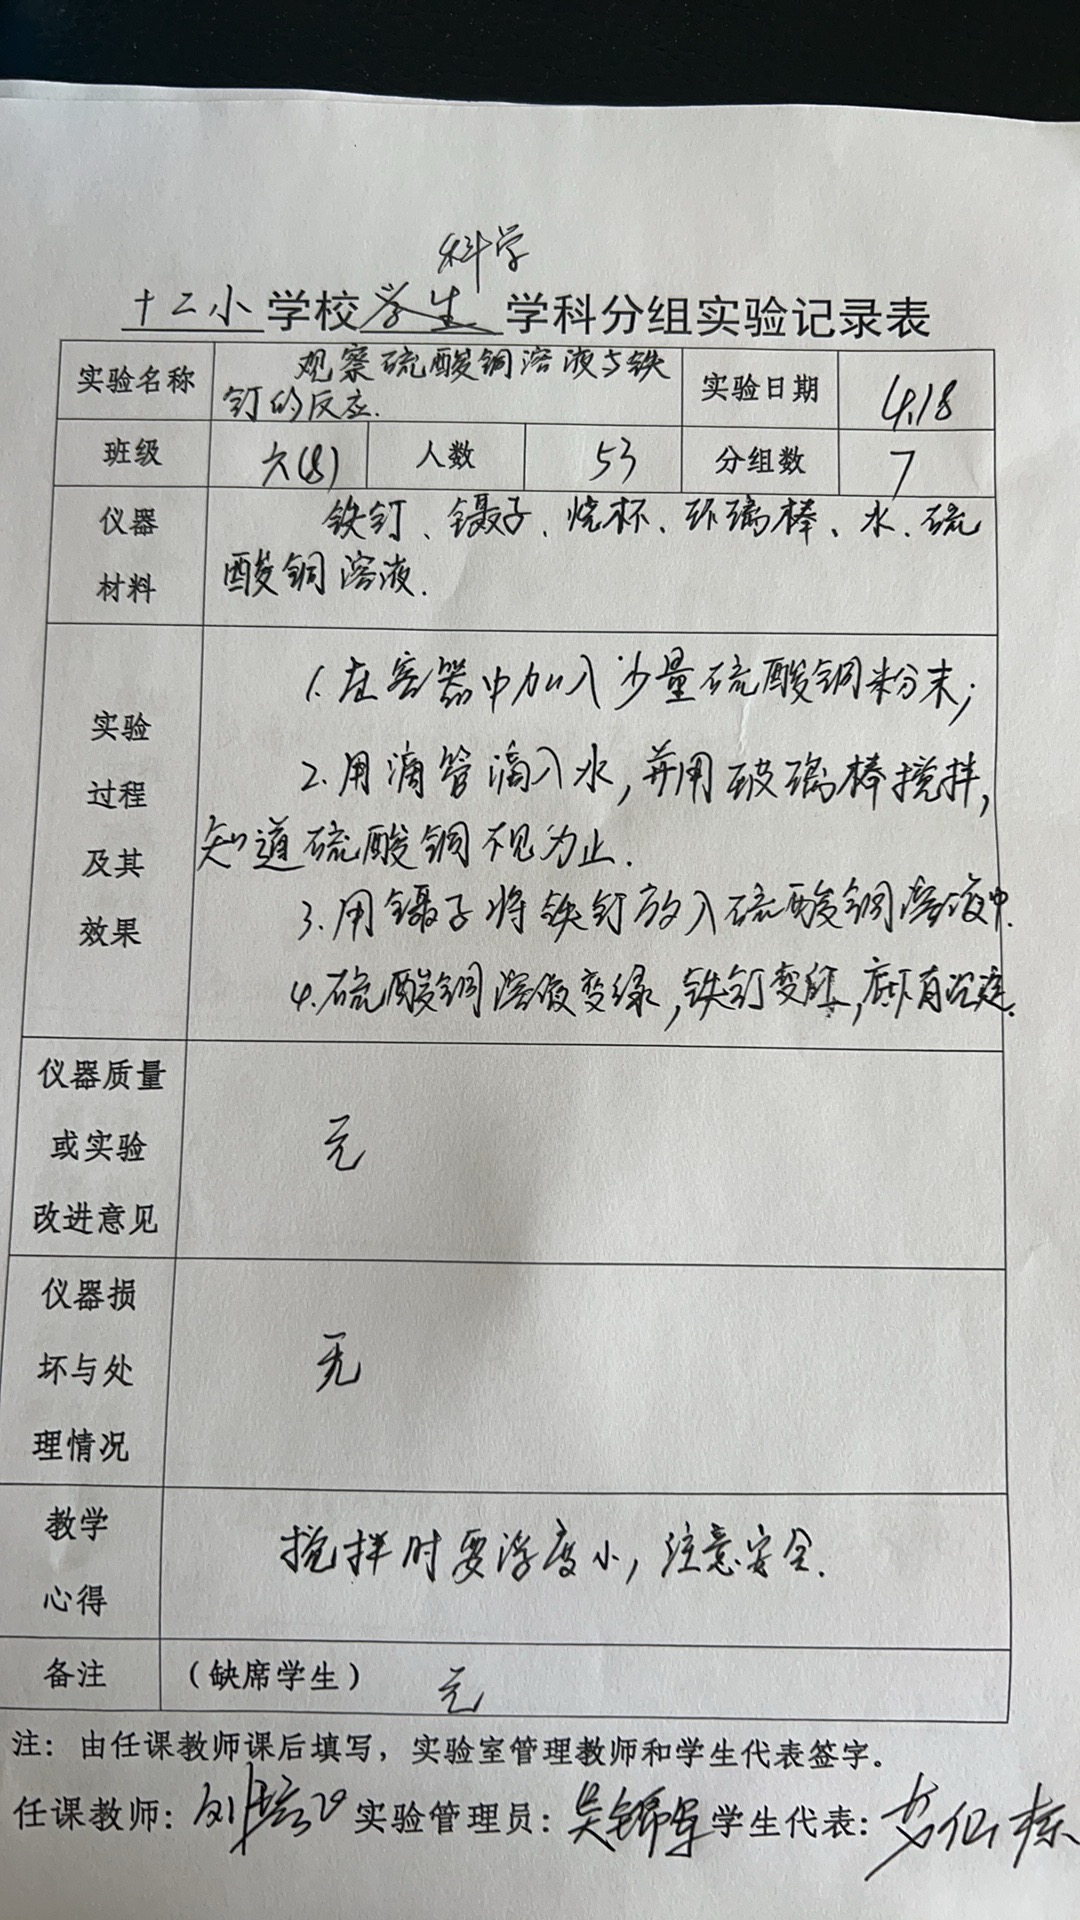 科学
十二小学校学生学科分组实验记录表
实验名称 观察硫酸铜溶液与铁钉的反应. 实验日期 4.18
班级 六(8) 人数 53 分组数 7
仪器材料 铁钉、镊子、烧杯、玻璃棒、水、硫
酸铜溶液.
实验过程及其效果
1.在容器中加入少量硫酸铜粉末;
2.用滴管滴入水,并用玻璃棒搅拌,
知道硫酸铜不见为止.
3.用镊子将铁钉放入硫酸铜溶液中.
4.硫酸铜溶液变绿,铁钉变红,底下有沉淀.
仪器质量或实验改进意见 无
仪器损坏与处理情况 无
教学心得 搅拌时要浮度小,注意安全.
备注 (缺席学生) 无
注:由任课教师课后填写,实验室管理教师和学生代表签字。
任课教师: 实验管理员:吴锦军 学生代表: